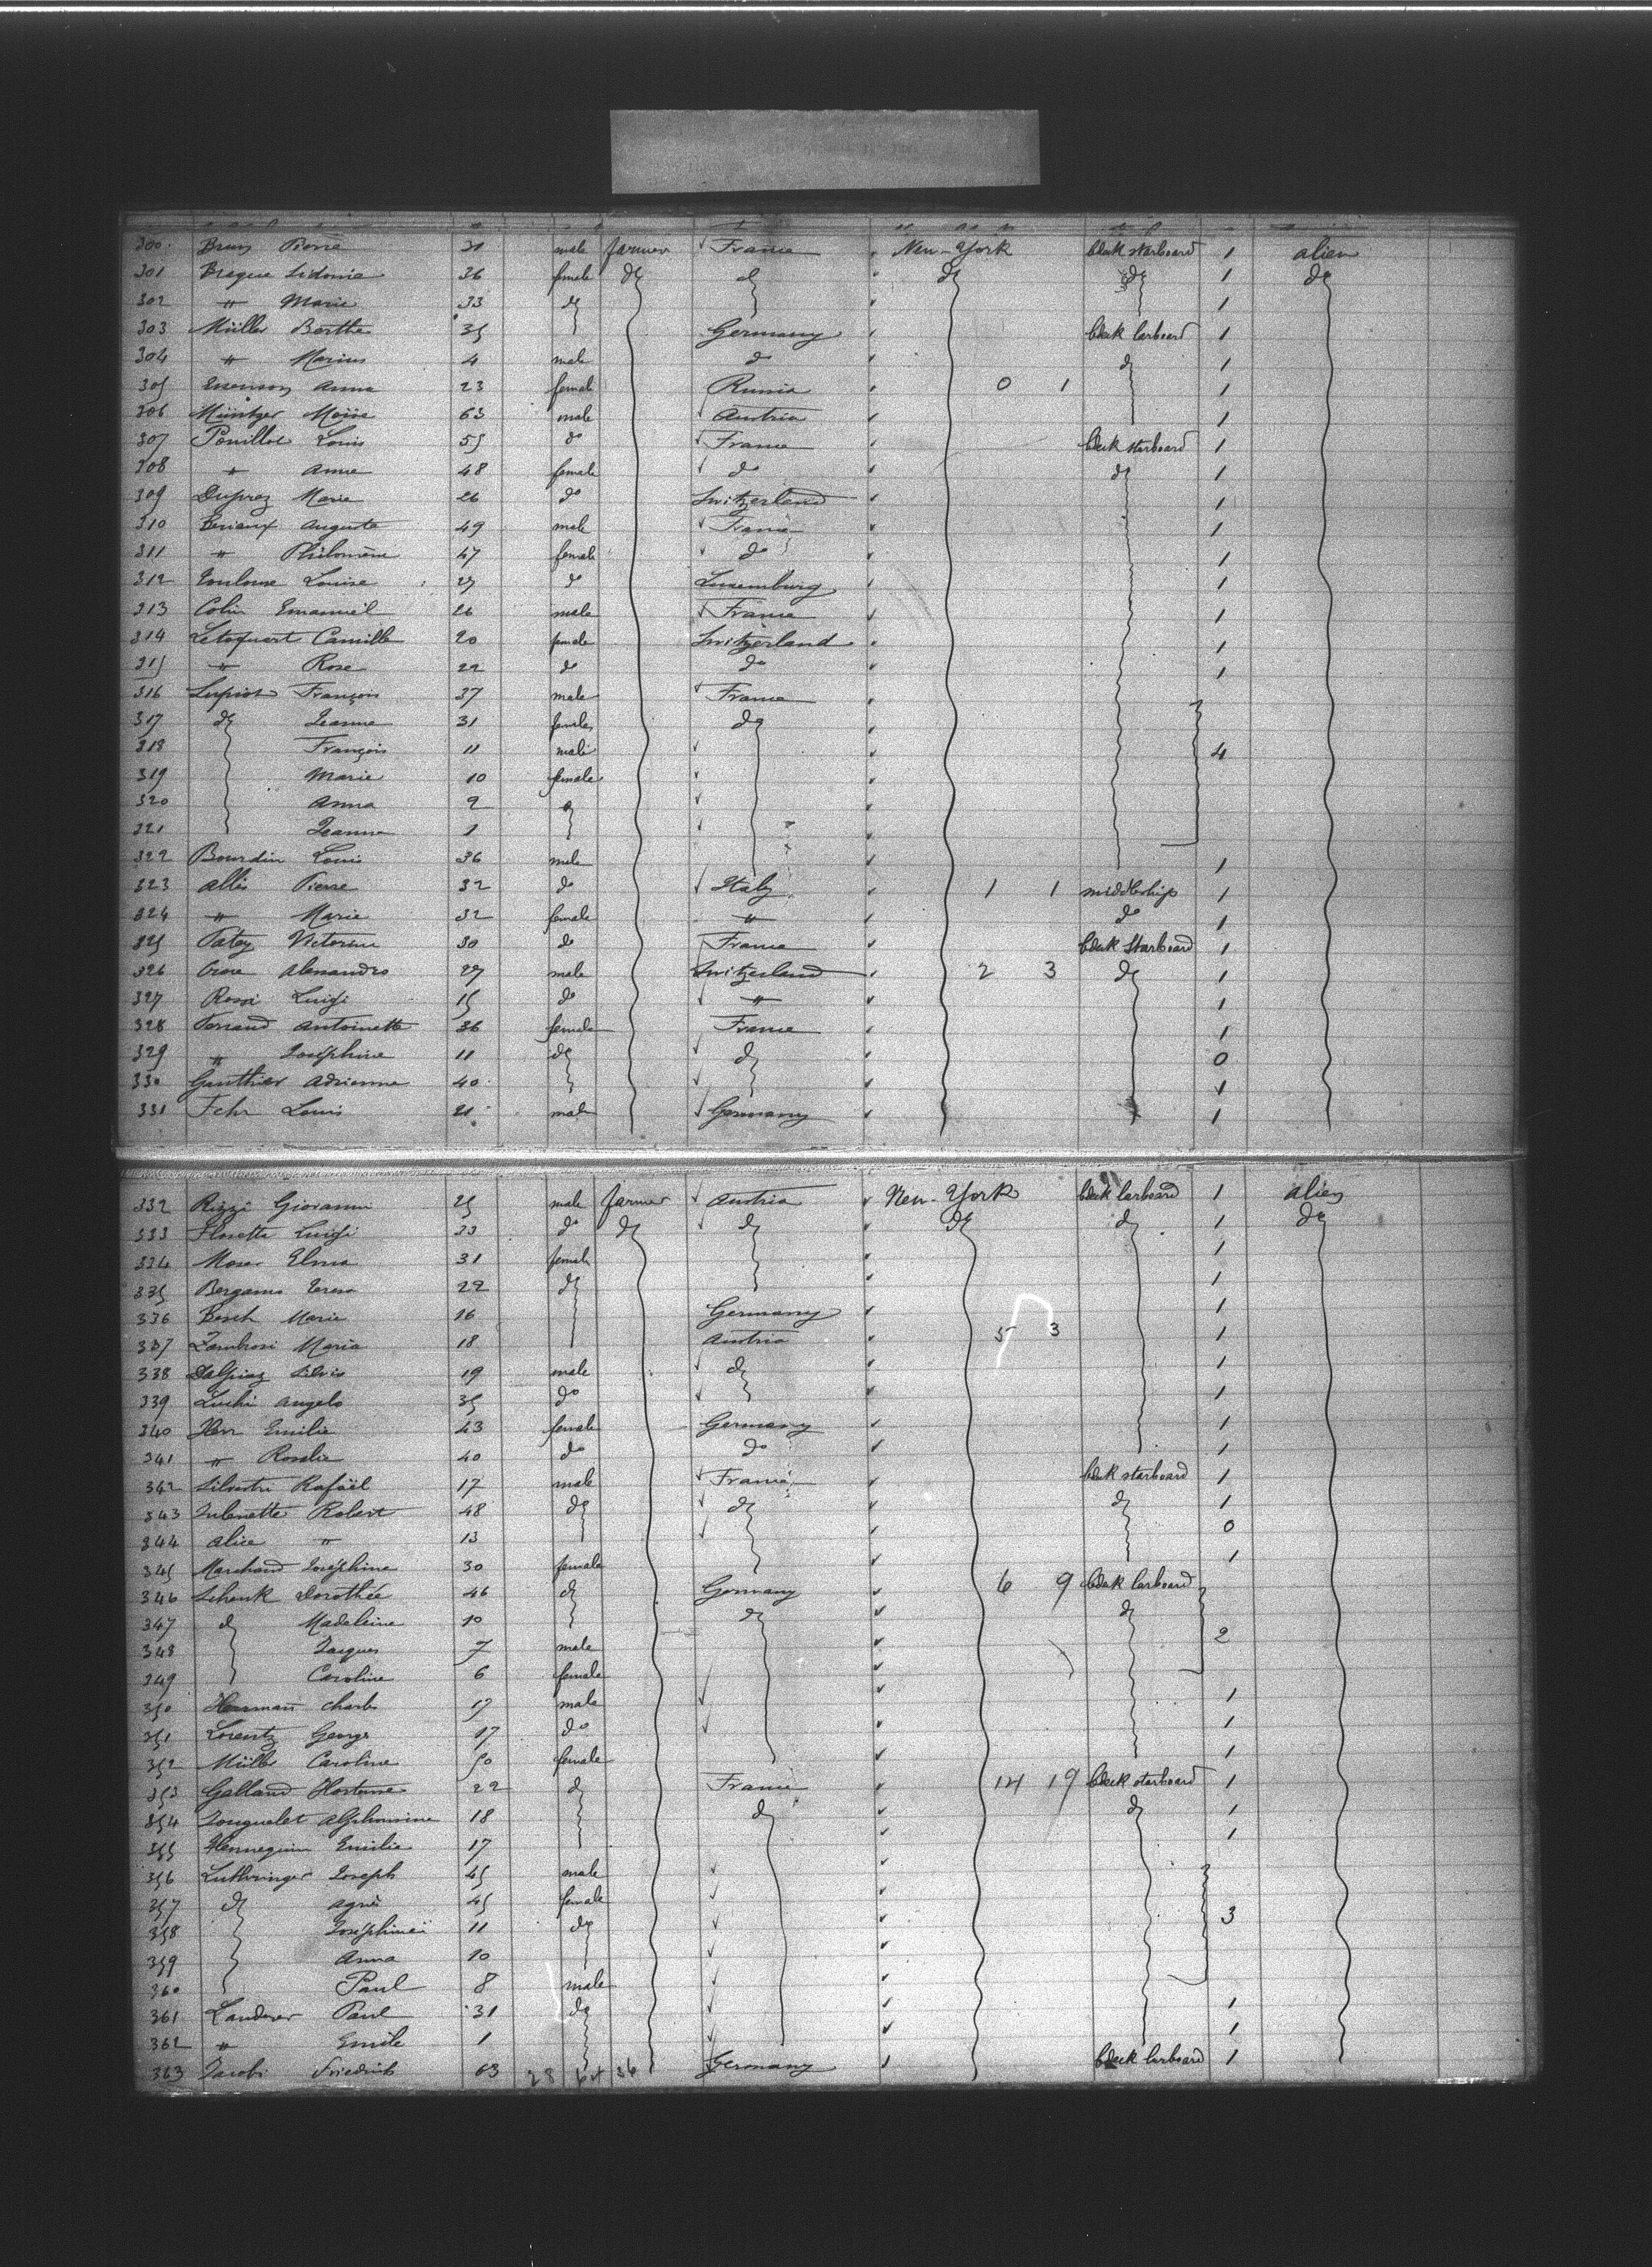 300 Brun Pierre 31 male farmer France New-York bdeck starboard 1 alien
301 Braque Sidonie 36 female do do do do 1 do
302 " Marie 33 do 1
303 Müller Berthe 35 Germany bdeck larboard 1
304 " Marius 4 male do do 1
305 Anna 23 female Russia 0 1 1
306 Müntzer Moïse 63 male Austria 1
307 Pouillot Louis 55 do France bdeck starboard 1
308 " Anne 48 female do do 1
309 Duprez Marie 26 do Switzerland 1
310 Auguste 49 male France 1
311 " Philomène 47 female do 1
312 Toulouse Louise 27 do Luxemburg 1
313 Colin Emanuel 26 male France 1
314 Letoquart Camille 20 female Switzerland 1
315 " Rose 22 do do 1
316 Lupiot François 37 male France
317 do Jeanne 31 female do
318 François 11 male 4
319 Marie 10 female
320 Anna 9 do
321 Jeanne 1
322 Bourdin Louis 36 male 1
323 Allis Pierre 32 do Italy 1 1 middleship 1
324 " Marie 32 female " do 1
325 Patey Victorine 30 do France bdeck starboard 1
326 Alessandro 27 male Switzerland 2 3 do 1
327 Rossi Luigi 15 do " 1
328 Ferrand Antoinette 36 female France 1
329 " Joséphine 11 do do 0
330 Gauthier Adrienne 40 1
331 Fehr Louis 21 male Germany 1
332 Rizzi Giovanni 25 male farmer Austria New-York bdeck larboard 1 alien
333 Floretta Luigi 33 do do do do do 1 do
334 Moser Elma 31 female 1
335 Bergamo Teresa 22 do 1
336 Besch Marie 16 Germany 1
337 Zambroni Maria 18 Austria 5 3 1
338 Dalpiaz Silvio 19 male do 1
339 Luchi Angelo 35 do 1
340 Herr Emilie 43 female Germany 1
341 " Rosalie 40 do do 1
342 Silvestri Rafaël 17 male France bdeck starboard 1
343 Robert 48 do do do 1
344 Alice " 13 0
345 Marchand Joséphine 30 female 1
346 Schenk Dorothée 46 do Germany 6 9 bdeck larboard
347 do Madeleine 10 do do
348 Jacques 7 male 2
349 Caroline 6 female
350 Hermann Charles 17 male 1
351 Lorentz George 17 do 1
352 Müller Caroline 50 female 1
353 Galland Hortense 22 do France 14 19 bdeck starboard 1
354 Jouguelet Alphonsine 18 do do 1
355 Hennequin Emilie 17 1
356 Luthringer Joseph 45 male
357 do Agnès 45 female
358 Joséphine 11 do 3
359 Anna 10
360 Paul 8 male
361 Landerer Paul 31 do 1
362 " Emile 1 1
363 Jacobi Friedrich 63 28 36 Germany bdeck larboard 1